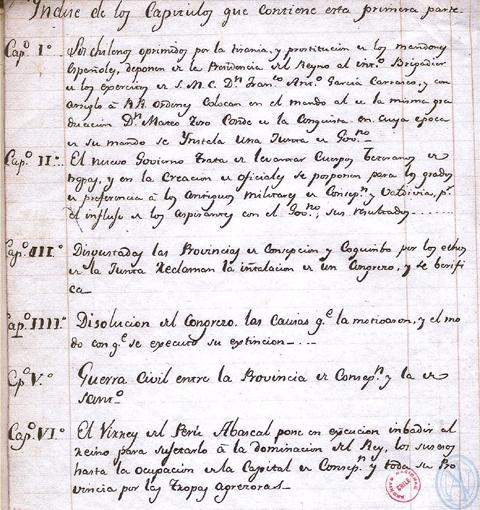 Yndice de los Capitulos que contiene esta primera parte.
Cap.º I.º Los chilenos oprimidos por la tirania, y prostitucion de los mandones
Españoles, deponen de la Presidencia del Reyno al int.º Brigadier
de los exercitos de S.M.C. Dⁿ Fran.co Ant.º Garcia Carrasco, y con
arreglo à R.R. ordenes Colocan en el mando al de la misma gra
duacion Dⁿ Mateo Toro Conde de la Conquista en cuya epoca
de su mando se Ynstala Una Junta de Gov.no
Cap.º II.º El nuevo Govierno trata de levantar Cuerpos Veteranos de
tropas, y en la Creacion de oficiales se posponen para los grados
de preferencia à los antiguos Militares de Consep.n y Valdivia, p.r
el influjo de los aspirantes con el Gov.no; sus resultados
Cap.º III.º Disgustadas las Provincias de Consepcion y Coquimbo por los echos
de la Junta Reclaman la instalacion de un Congreso, y se berifi
ca
Cap.º IIII.º Disolucion del Congreso, las causas q.e la motivaron, y el mo
do con q.e se executó su extincion
Cp.º V.º Guerra Civil entre la Provincia de Consep.n y la de
Sant.º
Cap.º VI.º El Virrey del Perú Abascal pone en execucion inbadir al
reino para sujetarlo à la dominacion del Rey, los susesos
hasta la ocupacion de la Capital de Consep.n y toda su Pro
vincia por las tropas agresoras